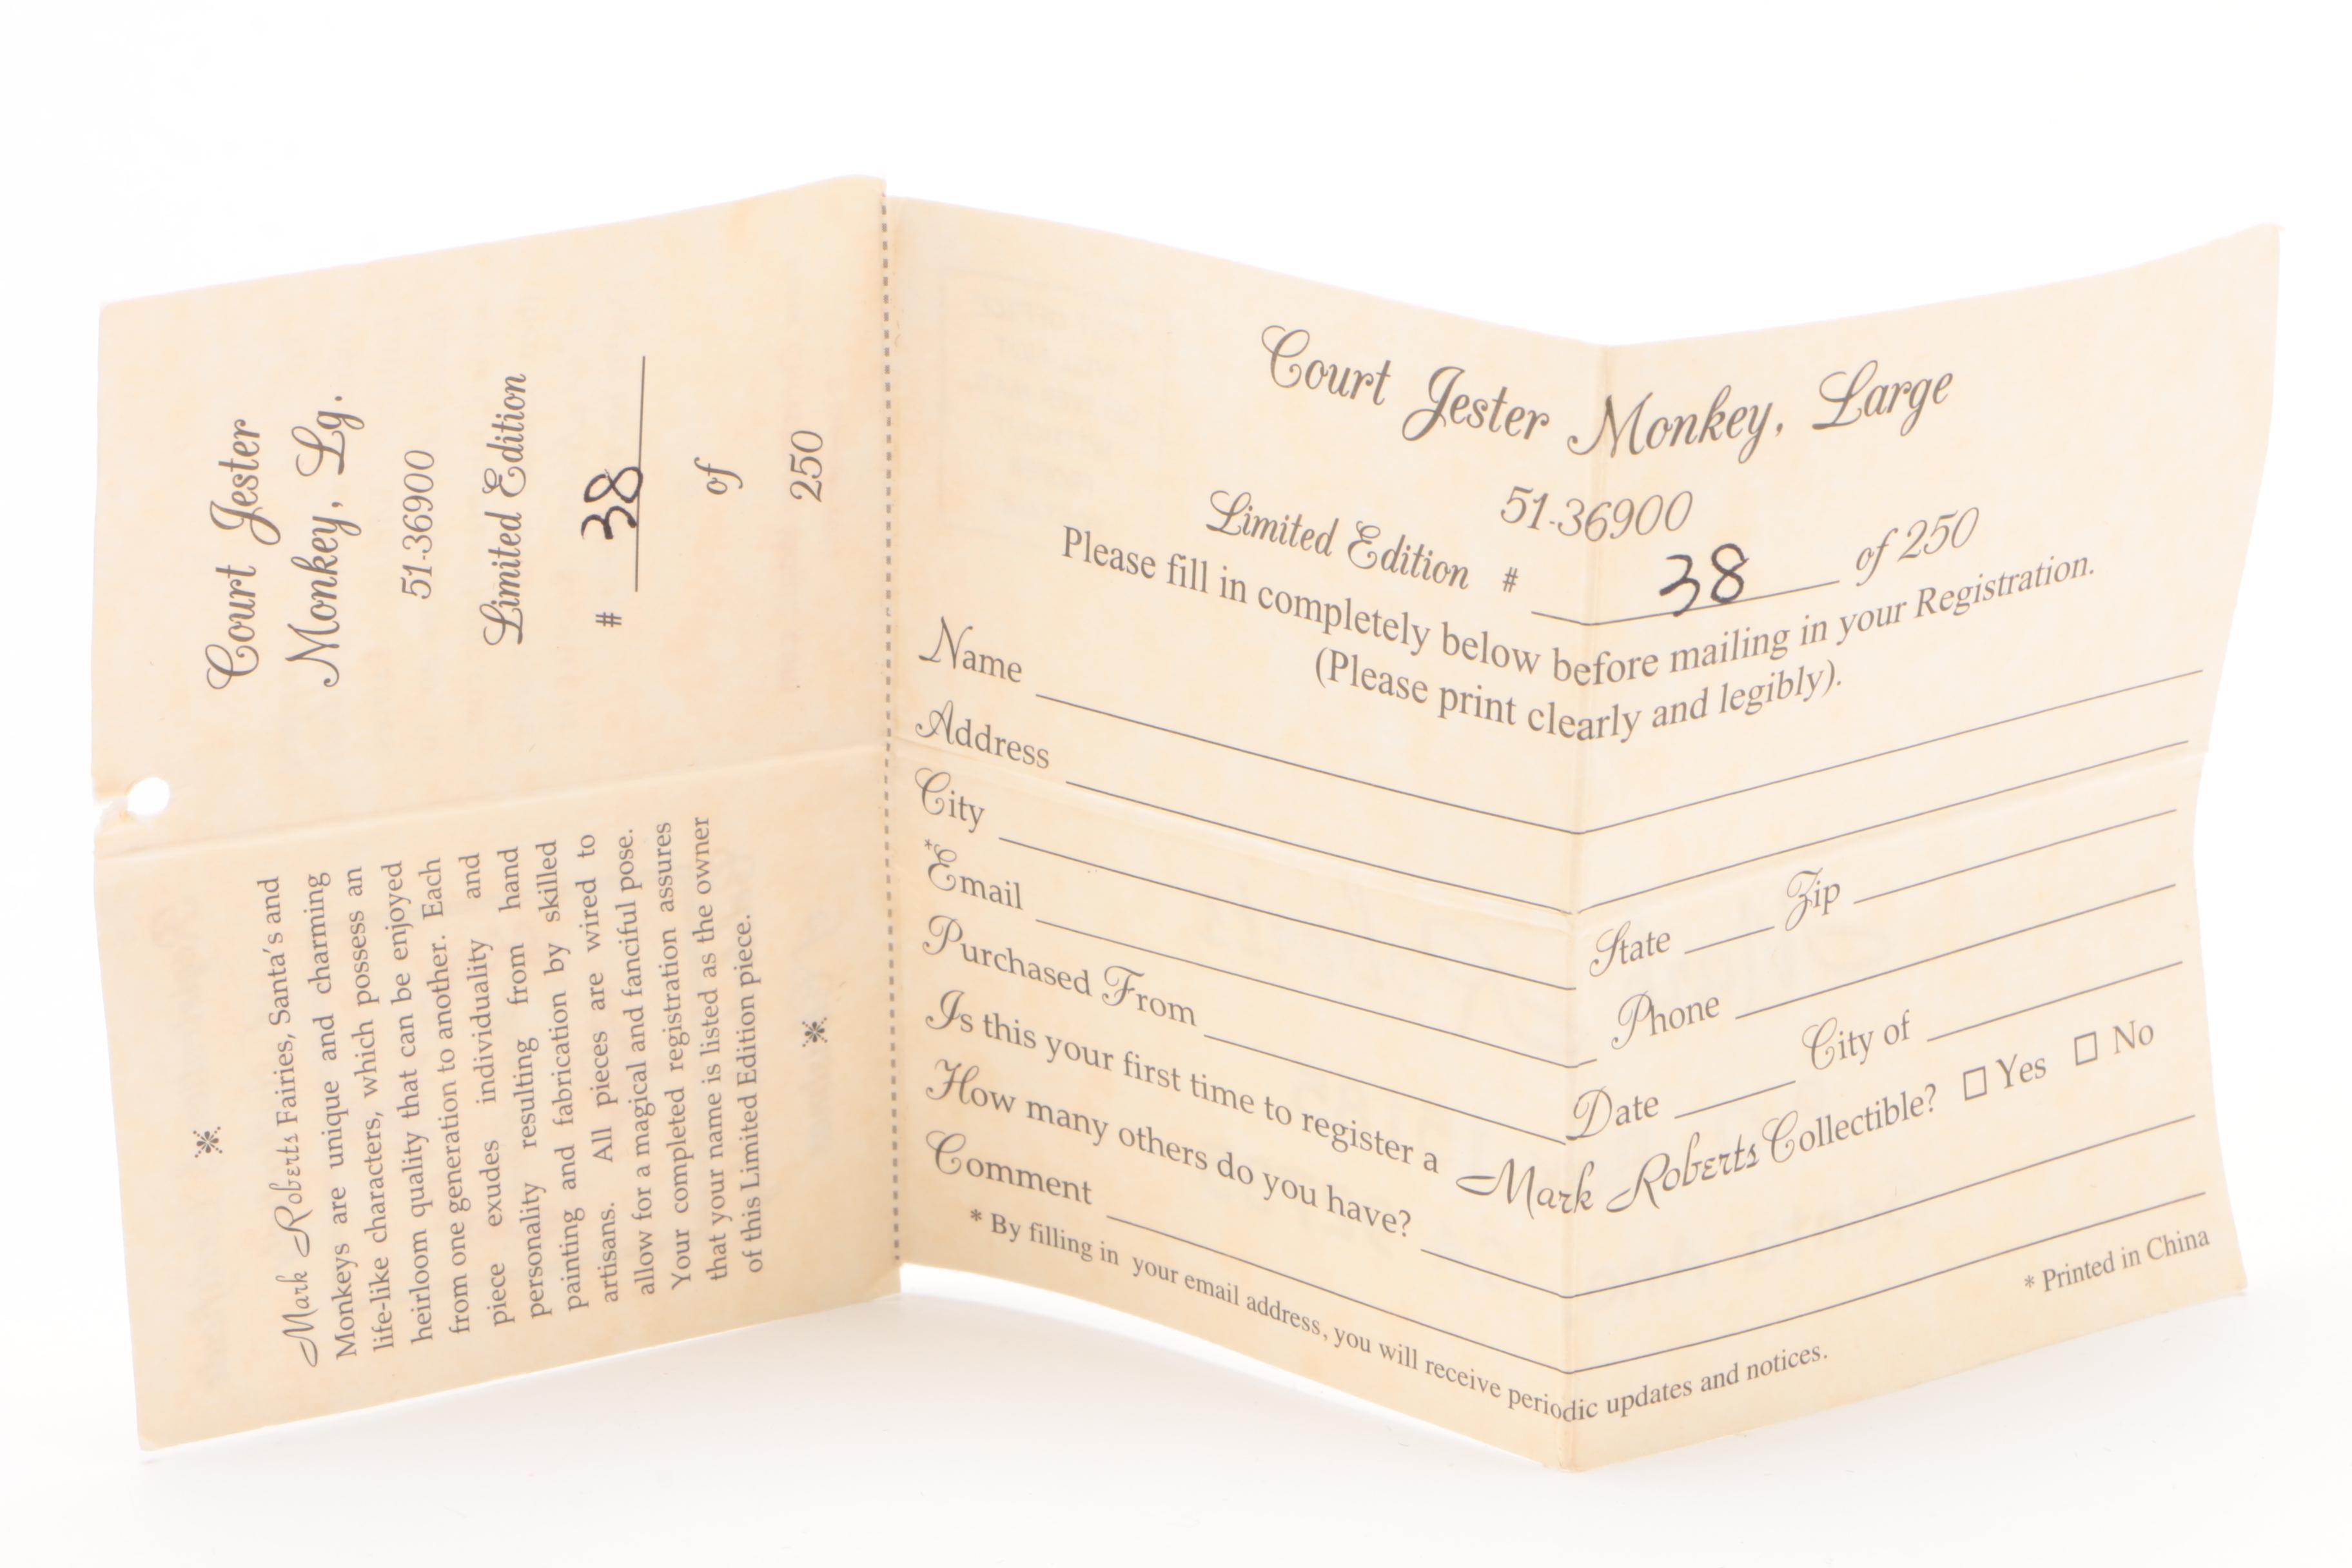 Court Jester
Monkey, Lg.
51-36900
Limited Edition
# 38
of
250
Mark Roberts Fairies, Santa's and
Monkeys are unique and charming
life-like characters, which possess an
heirloom quality that can be enjoyed
from one generation to another. Each
piece exudes individuality and
personality resulting from hand
painting and fabrication by skilled
artisans. All pieces are wired to
allow for a magical and fanciful pose.
Your completed registration assures
that your name is listed as the owner
of this Limited Edition piece.
Court Jester Monkey, Large
51-36900
Limited Edition # 38 of 250
Please fill in completely below before mailing in your Registration.
(Please print clearly and legibly).
Name
Address
City State Zip
*Email Phone
Purchased From Date City of
Is this your first time to register a Mark Roberts Collectible? ☐ Yes ☐ No
How many others do you have?
Comment
* By filling in your email address, you will receive periodic updates and notices.
* Printed in China